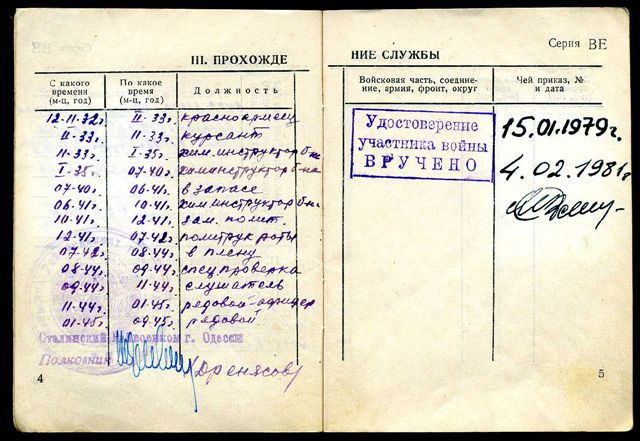 III. ПРОХОЖДЕ
С какого времени (м-ц, год)
По какое время (м-ц, год)
Должность
12-11-32г II-33г. красноармеец
II-33г. 11-33г. курсант
11-33г. I-35г. хим.инструктор б-на
I-35. 07-40г. химинструктор б-на
07-40г. 06-41г. в запасе
06.41г. 10-41г. хим инструктор б-на
10.41г. 12-41г. зам. полит.
12-41г. 07-42г. политрук роты
07-42г 08-44г. в плену
08-44г. 09-44г. спец проверка
09.44г. 11-44г. слушатель
11-44г. 01-45г. рядовой-офицер
01-45г. 09.45г. рядовой
Сталинский военком г. Одессы
Полковник
4
Серия ВЕ
НИЕ СЛУЖБЫ
Войсковая часть, соедине-
ние, армия, фронт, округ
Чей приказ, №
и дата
Удостоверение
участника войны
ВРУЧЕНО
15.01.1979г.
4.02.1981г
5